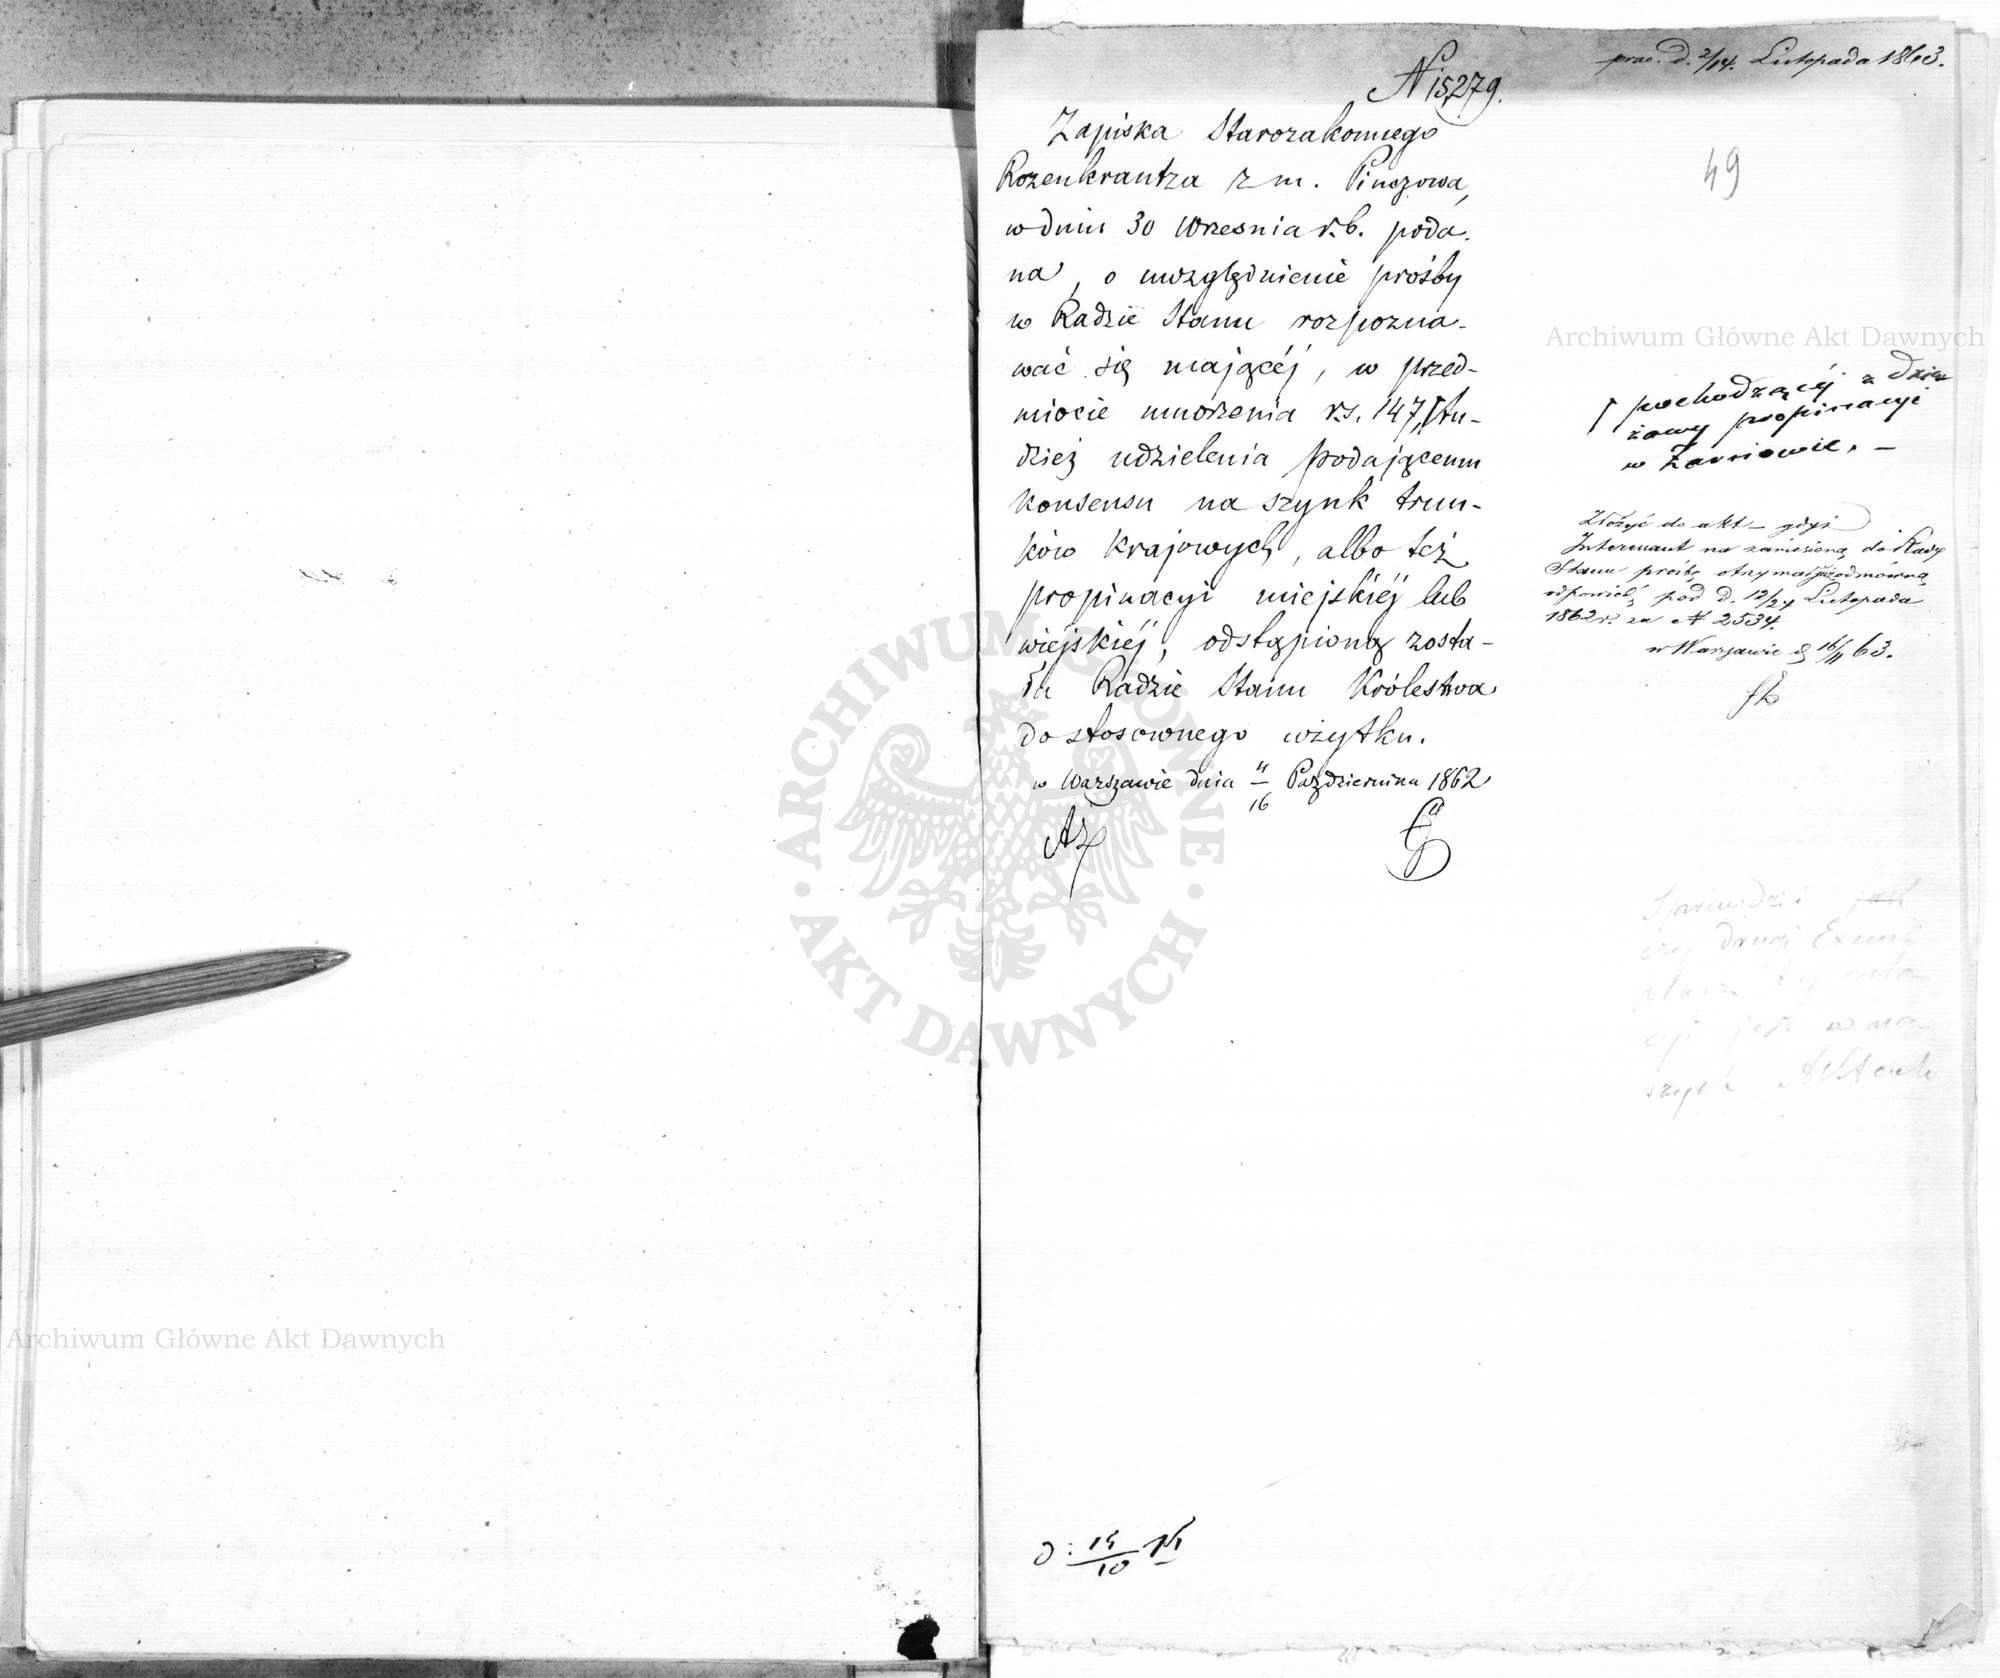 prae. d. 2/14. Listopada 1863.
N 15279.
49
Zapiska Starozakonnego
Rozenkrantza z m. Pinczowa,
w dniu 30 Wrzesnia r.b. poda-
na, o uwzględnienie prośby
w Radzie Stanu rozpozna-
wać się mającéj, w przed-
miocie umorzenia rs. 147, tu-
dzież udzielenia podającemu
konsensu na szynk trun-
ków krajowych, albo też
propinacyi miejskiéj lub
wiejskiéj, odstąpioną zosta-
ła Radzie Stanu Królestwa
do stosownego użytku.
w Warszawie dnia 4/16 Października 1862
AZ
pochodzącéj z dzier
żawy propinacyi
w Żarnowie. –
Złożyć do akt – gdyż
Interessant na zaniesioną do Rady
Stanu prośbę otrzymał już odmówną
odpowiedź pod d. 12/24 Listopada
1862 r. za N 2534.
w Warszawie d 16/11 63.
Sprawdzić jest
czy drugi Exem
plarz
cyi jest w na
szych Aktach
d: 15/10
Archiwum Główne Akt Dawnych
Archiwum Główne Akt Dawnych
ARCHIWUM GŁÓWNE
AKT DAWNYCH